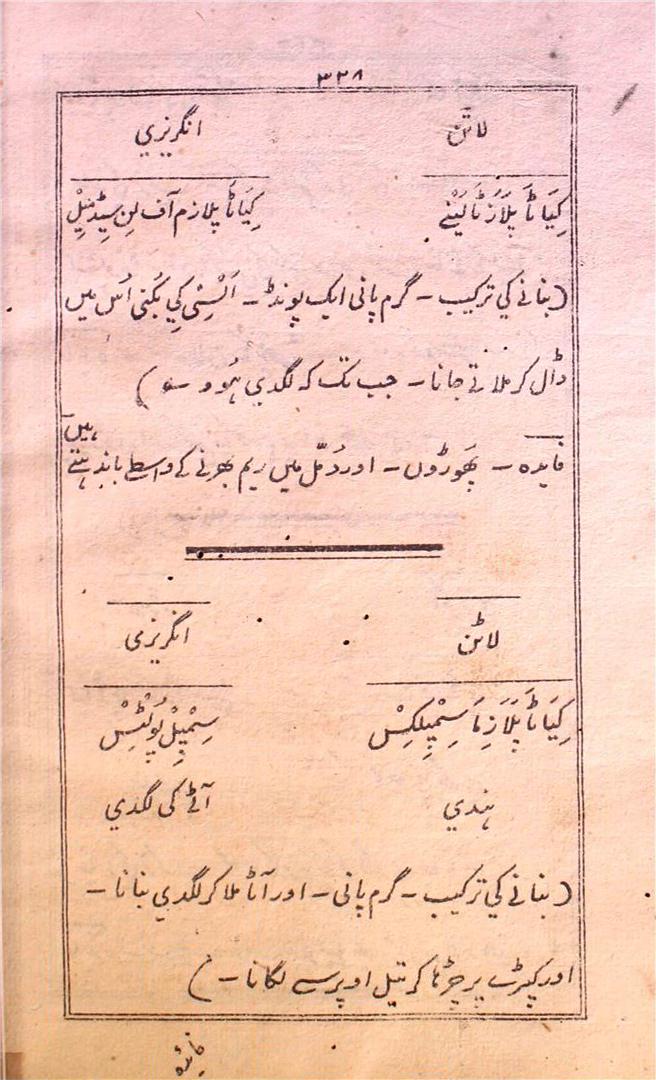 ۳۲۸
لاتن انگریزي
کِیَاٹَا پلَازْمَا لَیْنَے کِیَاٹَا پلازم آف لِن سِیڈ مِیْل
(بنانے کی ترکیب ۔ گرم پانی ایک پونڈ ۔ اَلْسِی کِي بُکنی اُس میں
ڈال کر ملاتے جانا ۔ جب تک کہ لگدي ہُووے)
فایدہ ۔ پھَوڑوں ۔ اور دُمّل میں ریم بھرنے کے واسطے باندہتے ہیں
لاٹن انگریزی
کِیَاٹَا پَلَازِمَا سِمْپِلِکِسْ سِمْپِلْ پُولْٹِسْ
ہندي آٹے کی لگدي
(بنانے کي ترکیب ۔ گرم پانی ۔ اور آٹا ملا کر لگدي بنانا ۔
اور کپڑے پر چڑہا کر تیل اوپر سے لگانا ۔)
فایٔدہ